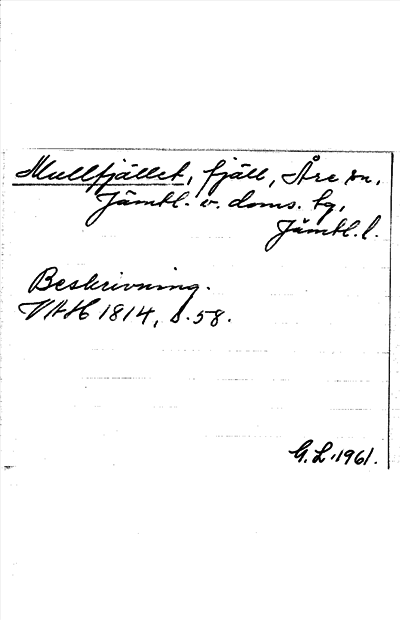 Mullfjället, fjäll, Åre sn,
Jämtl. v. doms. hg,
Jämtl. l.
Beskrivning.
VAH 1814, s. 58.
G. L. 1961.